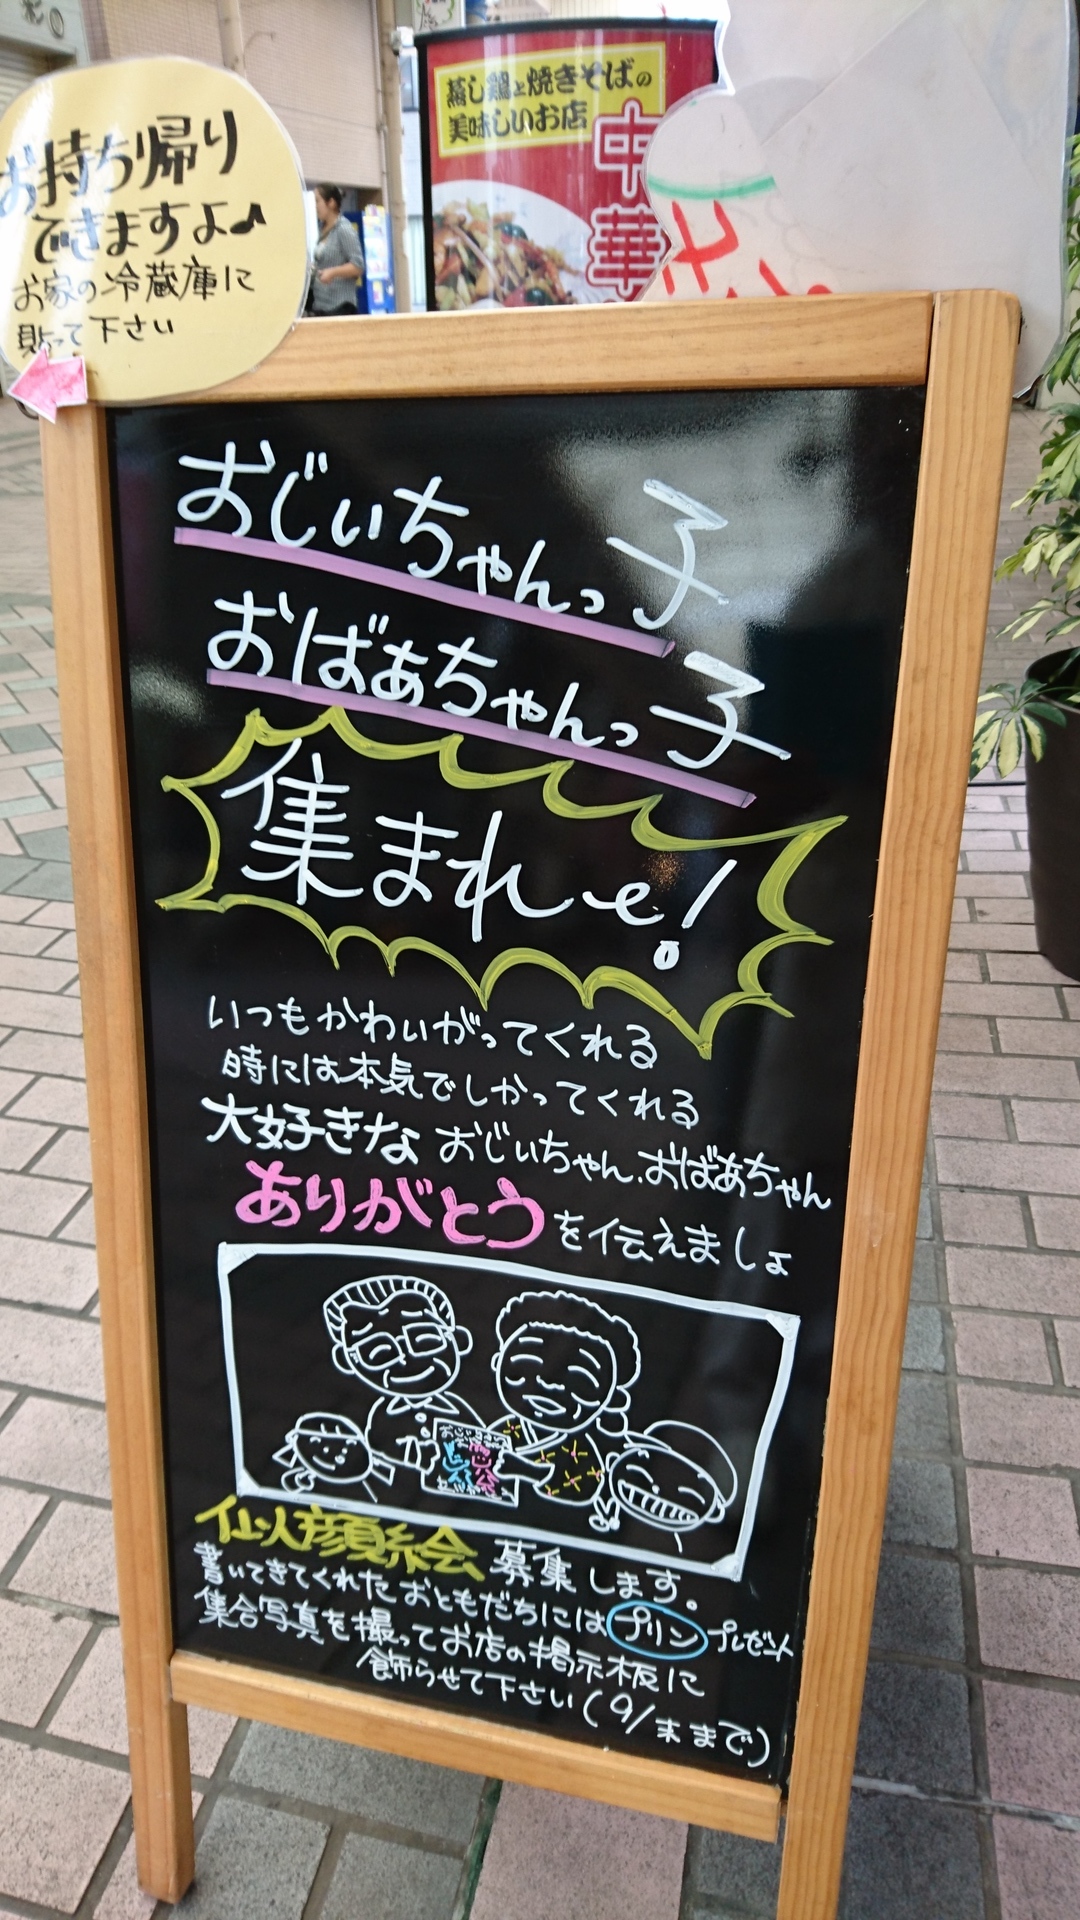 お持ち帰り
できますよ♪
お家の冷蔵庫に
貼って下さい
蒸し鶏と焼きそばの
美味しいお店
中華
おじいちゃんっ子
おばあちゃんっ子
集まれ〜!
いつもかわいがってくれる
時には本気でしかってくれる
大好きな おじいちゃん.おばあちゃん
ありがとう を伝えましょ
似顔絵 募集します。
書いてきてくれたおともだちには プリン プレゼント
集合写真を撮ってお店の掲示板に
飾らせて下さい(9/末まで)